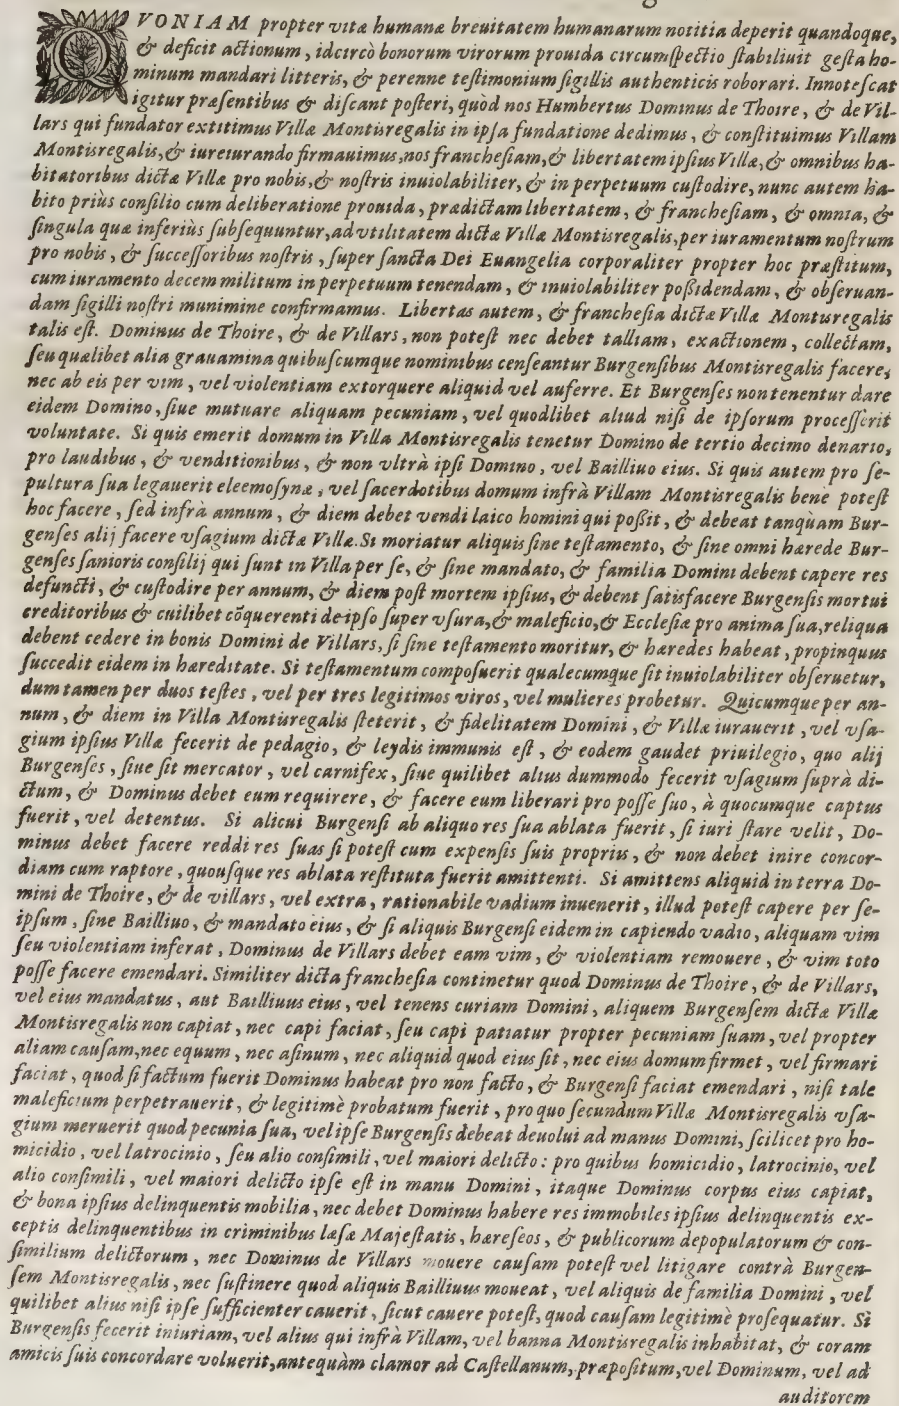 QVONIAM propter vitæ humanæ breuitatem humanarum notitia deperit quandoque,
& deficit actionum, idcircò bonorum virorum prouida circumſpectio ſtabiliuit geſta ho-
minum mandari litteris, & perenne teſtimonium ſigillis authenticis roborari. Innoteſcat
igitur præſentibus & diſcant poſteri, quòd nos Humbertus Dominus de Thoire, & de Vil-
lars qui fundator extitimus Villæ Montisregalis in ipſa fundatione dedimus, & conſtituimus Villam
Montisregalis, & iureiurando firmauimus, nos francheſiam, & libertatem ipſius Villæ, & omnibus ha-
bitatoribus dictæ Villæ pro nobis, & noſtris inuiolabiliter, & in perpetuum cuſtodire, nunc autem ha-
bito priùs conſilio cum deliberatione prouida, prædictam libertatem, & francheſiam, & omnia, &
ſingula quæ inferiùs ſubſequuntur, ad vtilitatem dictæ Villæ Montisregalis, per iuramentum noſtrum
pro nobis, & ſucceſſoribus noſtris, ſuper ſancta Dei Euangelia corporaliter propter hoc præſtitum,
cum iuramento decem militum in perpetuum tenendam, & inuiolabiliter poßidendam, & obſeruan-
dam ſigilli noſtri munimine confirmamus. Libertas autem, & francheſia dictæ Villæ Montisregalis
talis eſt. Dominus de Thoire, & de Villars, non poteſt nec debet talliam, exactionem, collectam,
ſeu quælibet alia grauamina quibuſcumque nominibus cenſeantur Burgenſibus Montisregalis facere,
nec ab eis per vim, vel violentiam extorquere aliquid vel auferre. Et Burgenſes non tenentur dare
eidem Domino, ſiue mutuare aliquam pecuniam, vel quodlibet aliud niſi de ipſorum proceſſerit
voluntate. Si quis emerit domum in Villa Montisregalis tenetur Domino de tertio decimo denario,
pro laudibus, & venditionibus, & non vltrà ipſi Domino, vel Bailliuo eius. Si quis autem pro ſe-
pultura ſua legauerit eleemoſynæ, vel ſacerdotibus domum infrà Villam Montisregalis bene poteſt
hoc facere, ſed infrà annum, & diem debet vendi laico homini qui poßit, & debeat tanquam Bur-
genſes alij facere vſagium dictæ Villæ. Si moriatur aliquis ſine teſtamento, & ſine omni hærede Bur-
genſes ſanioris conſilij qui ſunt in Villa per ſe, & ſine mandato, & familia Domini debent capere res
defuncti, & cuſtodire per annum, & diem poſt mortem ipſius, & debent ſatisfacere Burgenſis mortui
creditoribus & cuilibet cõquerenti de ipſo ſuper vſura, & maleficio, & Eccleſiæ pro anima ſua, reliqua
debent cedere in bonis Domini de Villars, ſi ſine teſtamento moritur, & hæredes habeat, propinquus
ſuccedit eidem in hæreditate. Si teſtamentum compoſuerit qualecumque ſit inuiolabiliter obſeruetur,
dum tamen per duos teſtes, vel per tres legitimos viros, vel mulieres probetur. Quicumque per an-
num, & diem in Villa Montisregalis ſteterit, & fidelitatem Domini, & Villæ iurauerit, vel vſa-
gium ipſius Villæ fecerit de pedagio, & leydis immunis eſt, & eodem gaudet priuilegio, quo alij
Burgenſes, ſiue ſit mercator, vel carnifex, ſiue quilibet alius dummodo fecerit vſagium ſuprà di-
ctum, & Dominus debet eum requirere, & facere eum liberari pro poſſe ſuo, à quocumque captus
fuerit, vel detentus. Si alicui Burgenſi ab aliquo res ſua ablata fuerit, ſi iuri ſtare velit, Do-
minus debet facere reddi res ſuas ſi poteſt cum expenſis ſuis propriis, & non debet inire concor-
diam cum raptore, quouſque res ablata reſtituta fuerit amittenti. Si amittens aliquid in terra Do-
mini de Thoire, & de villars, vel extra, rationabile vadium inuenerit, illud poteſt capere per ſe-
ipſum, ſine Bailliuo, & mandato eius, & ſi aliquis Burgenſi eidem in capiendo vadio, aliquam vim
ſeu violentiam inferat, Dominus de Villars debet eam vim, & violentiam remouere, & vim toto
poſſe facere emendari. Similiter dicta francheſia continetur quod Dominus de Thoire, & de Villars,
vel eius mandatus, aut Bailliuus eius, vel tenens curiam Domini, aliquem Burgenſem dictæ Villæ
Montisregalis non capiat, nec capi faciat, ſeu capi patiatur propter pecuniam ſuam, vel propter
aliam cauſam, nec equum, nec aſinum, nec aliquid quod eius ſit, nec eius domum firmet, vel firmari
faciat, quod ſi factum fuerit Dominus habeat pro non facto, & Burgenſi faciat emendari, niſi tale
maleficium perpetrauerit, & legitimè probatum fuerit, pro quo ſecundum Villæ Montisregalis vſa-
gium meruerit quod pecunia ſua, vel ipſe Burgenſis debeat deuolui ad manus Domini, ſcilicet pro ho-
micidio, vel latrocinio, ſeu alio conſimili, vel maiori delicto: pro quibus homicidio, latrocinio, vel
alio conſimili, vel maiori delicto ipſe eſt in manu Domini, itaque Dominus corpus eius capiat,
& bona ipſius delinquentis mobilia, nec debet Dominus habere res immobiles ipſius delinquentis ex-
ceptis delinquentibus in criminibus læſæ Majeſtatis, hæreſeos, & publicorum depopulatorum & con-
ſimilium delictorum, nec Dominus de Villars mouere cauſam poteſt vel litigare contrà Burgen-
ſem Montisregalis, nec ſuſtinere quod aliquis Bailliuus moueat, vel aliquis de familia Domini, vel
quilibet alius niſi ipſe ſufficienter cauerit, ſicut cauere poteſt, quod cauſam legitimè proſequatur. Si
Burgenſis fecerit iniuriam, vel alius qui infrà Villam, vel banna Montisregalis inhabitat, & coram
amicis ſuis concordare voluerit, antequàm clamor ad Caſtellanum, præpoſitum, vel Dominum, vel ad
auditorem